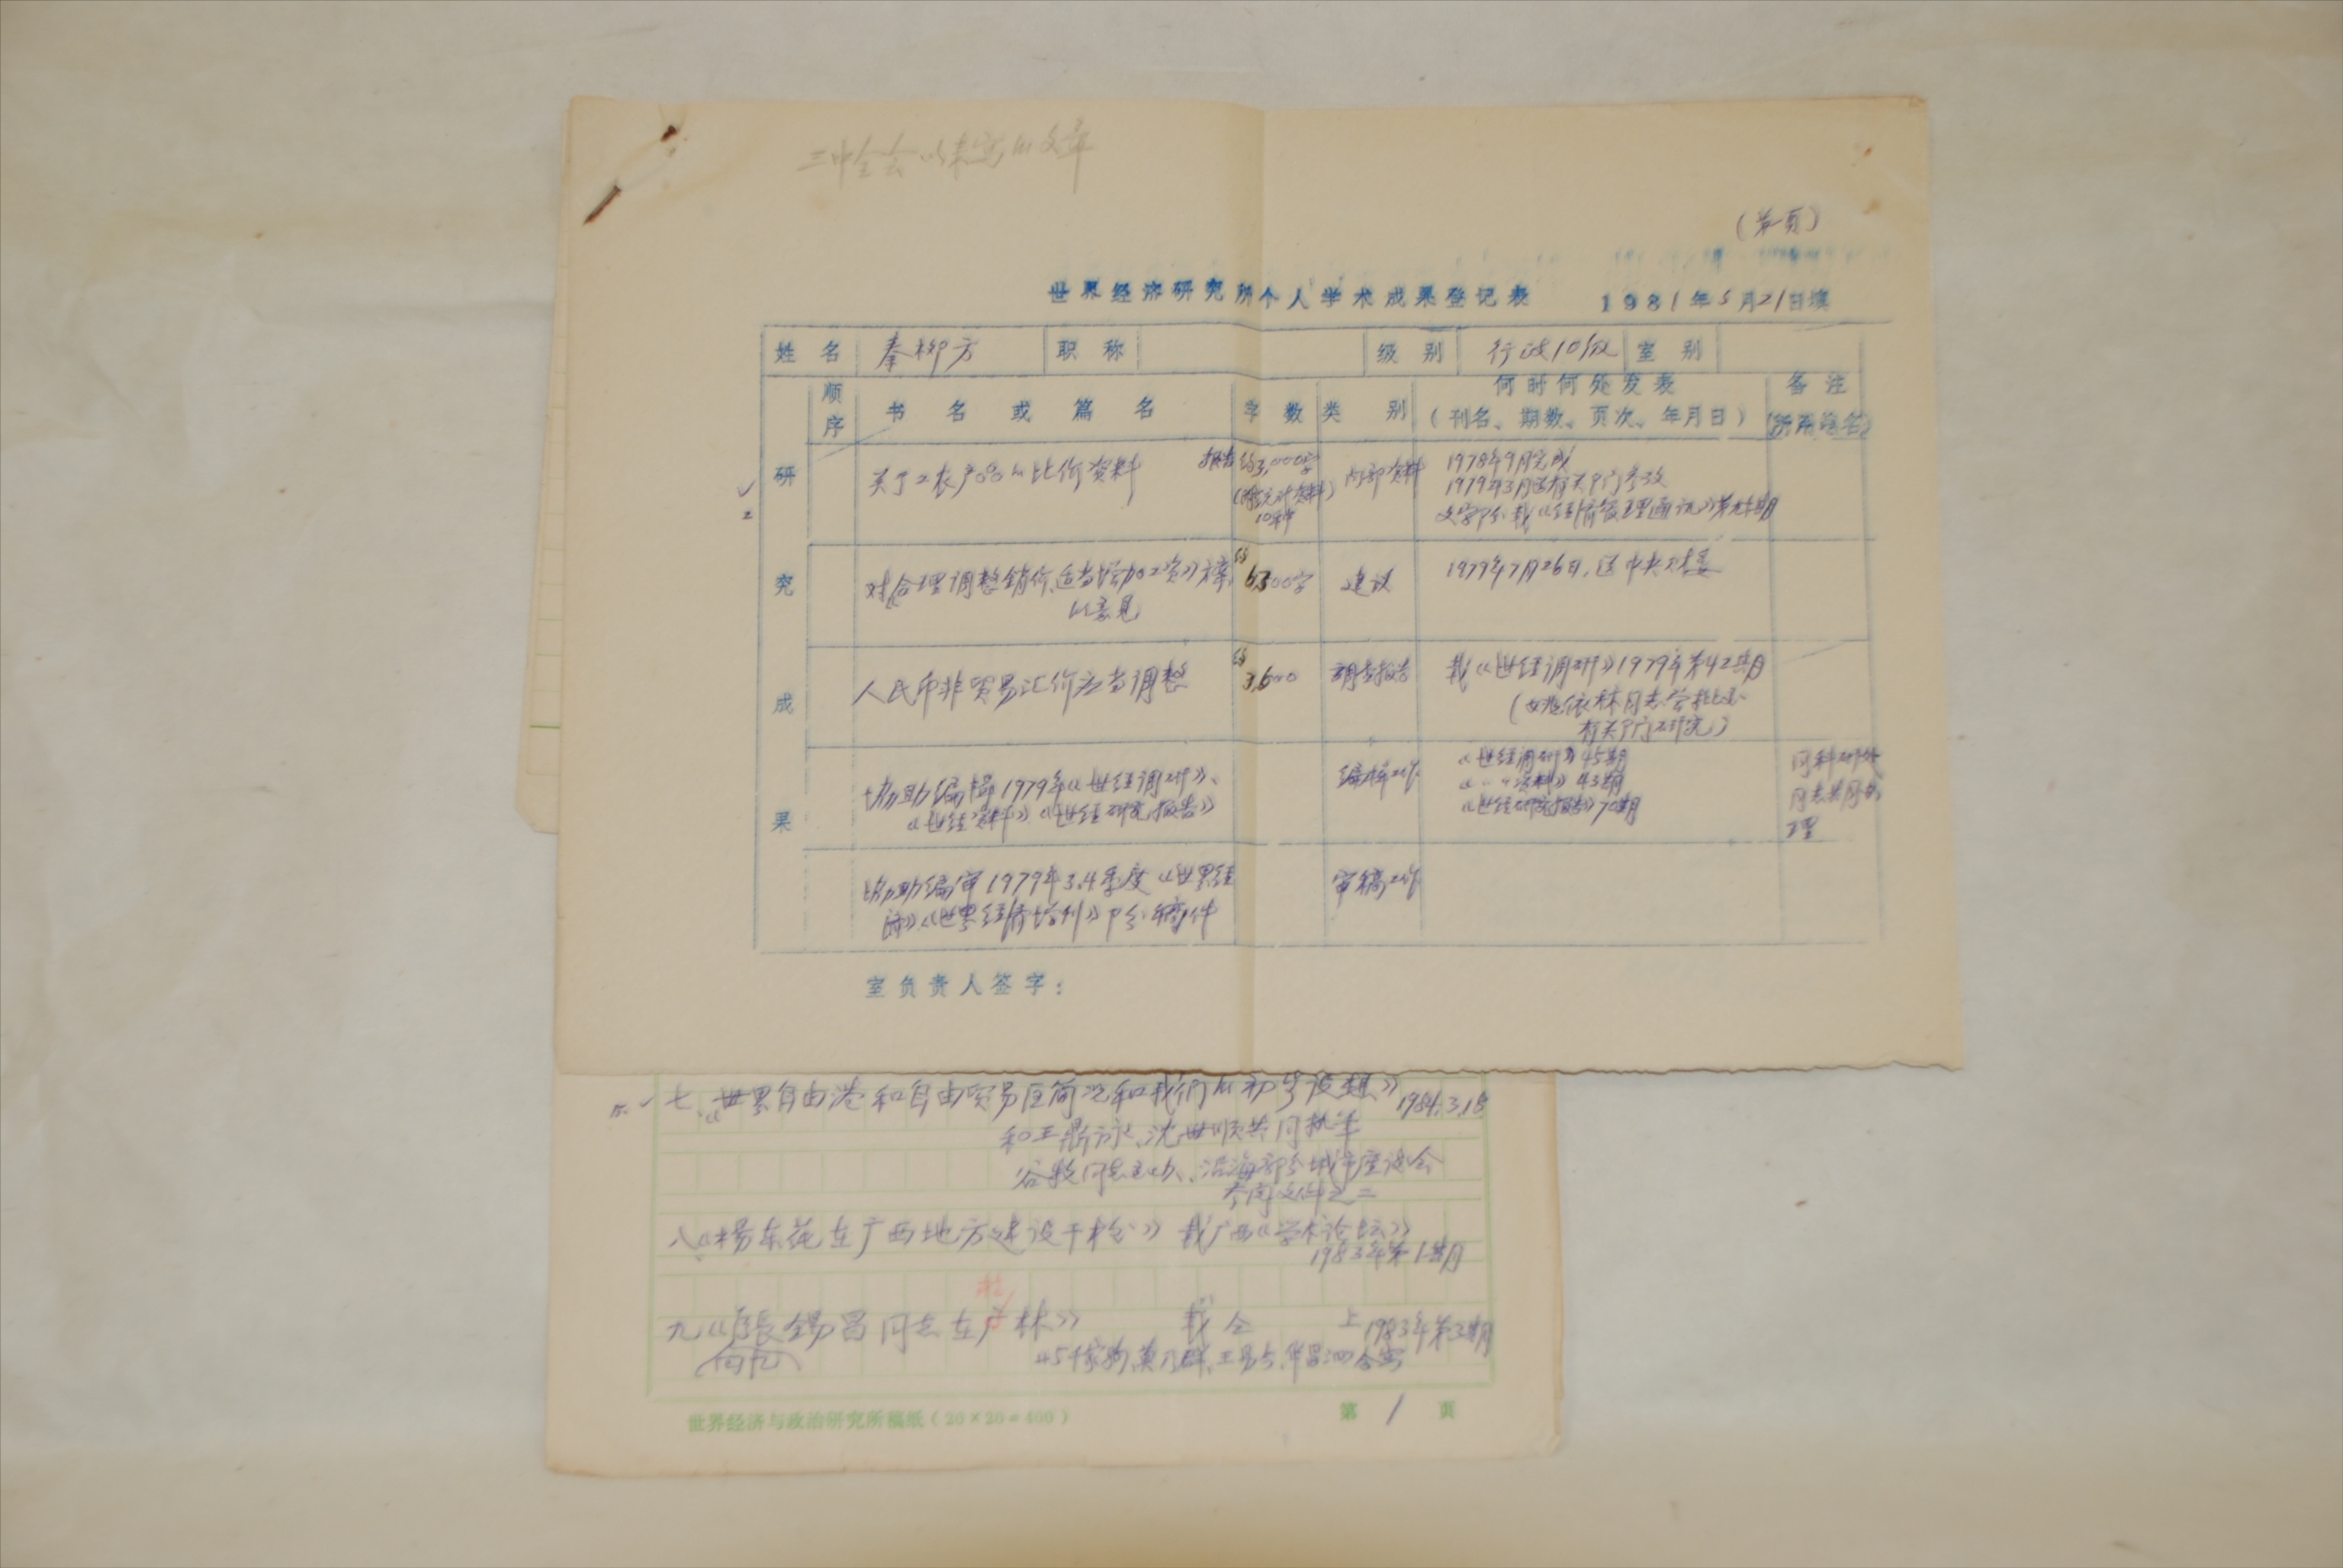 三中全会以来写的文章
(首页)
世界经济研究所个人学术成果登记表 1981年5月21日填
姓名 秦柳方 职称 级别 行政10级 室别
研究成果
顺序 书名或篇名 字数 类别 何时何处发表 备注
(刊名、期数、页次、年月日) (所用笔名)
关于工农产品的比价资料 报告约3,000字 内部资料 1978年9月完成
(附统计资料) 1979年3月送有关部门参考
10来种 文字部分载《经济管理通讯》
对《合理调整销价、适当增加工资》方案 约6,300字 建议 1979年7月26日,送中央财委
的意见
人民币非贸易汇价应当调整 约3,600 调查报告 载《世经调研》1979年第42期
(姚依林同志曾批示
有关部门研究)
协助编辑1979年《世经调研》、 编辑工作 《世经调研》45期
《世经资料》《世经研究报告》 《〃〃资料》43期
《世经研究报告》70期
同科研处
同志共同办
理
协助编审1979年3.4季度《世界经 审稿工作
济》《世界经济增刊》部分稿件
室负责人签字:
15. ✓ 七、《世界自由港和自由贸易区简况和我们的初步设想》 1984.3.18
和王鼎咏、沈世顺共同执笔
谷牧同志主办、沿海部分城市座谈会
参阅文件之二
八《杨东莼在广西地方建设干校》 载广西《学术论坛》
1983年第1期
九《张锡昌同志在桂林》 载仝上 1983年第3期
回忆
与千家驹、莫乃群、 合写
世界经济与政治研究所稿纸(20×20=400) 第1页